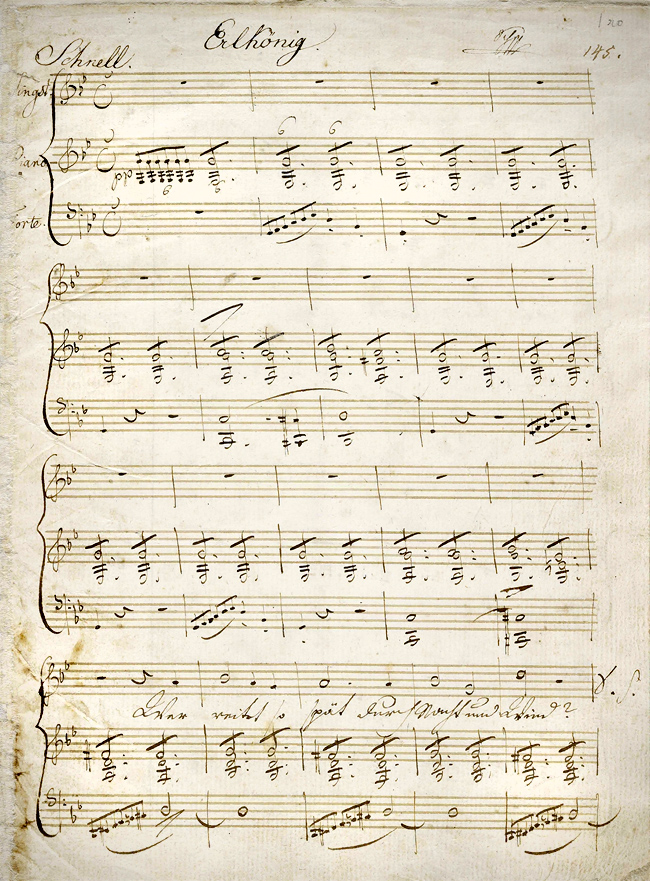 120
Erlkönig.
Schnell.
145.
Singst.
Piano
pp
6
6
6
6
Forte.
Wer reitet so spät durch Nacht und Wind?
V. S.